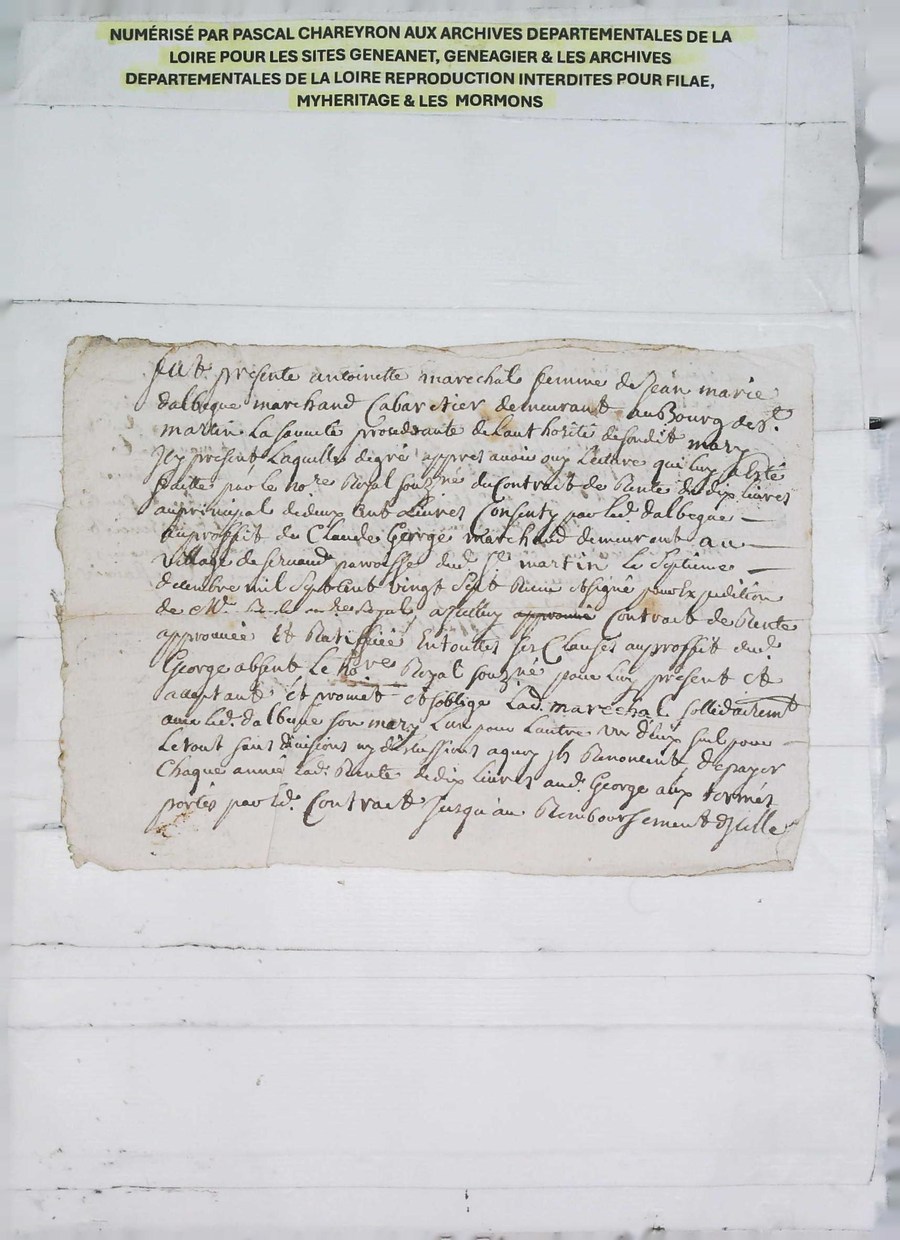 NUMÉRISÉ PAR PASCAL CHAREYRON AUX ARCHIVES DEPARTEMENTALES DE LA
LOIRE POUR LES SITES GENEANET, GENEAGIER & LES ARCHIVES
DEPARTEMENTALES DE LA LOIRE REPRODUCTION INTERDITES POUR FILAE,
MYHERITAGE & LES MORMONS
fut presente antoinette marechal femme de Jean marie
dalbegue marchand Cabaretier demeurant au Bourg de St.
martin La procedante de Lauthorité de sondit mary
Icy present Laquelle de gré appres avoir ouy Lecture qui luy a Esté
faitte par le nore Royal souzné du Contract de Rente de dix Livres
au principal de deux Cent Livres Consenty par led. dalbegue
au proffit de Claude George marchand demeurant au
village de paroisse dud. St martin Le septieme
decembre mil sept Cent vingt sept signé pour Expedition
de Me Royal, a Contract de Rente
approuvée Et Ratiffiée En touttes ses Clauses au proffit dud.
George absent Le nore Royal souzné pour luy present et
acceptant Et promet et s'oblige Lad. marechal sollidairemt
avec led. dalbegue son mary L'un pour L'autre un d'eux seul pour
Le tout sans divisions ny discussions a quoy ils Renoncent, de payer
Chaque année Lad. Rente de dix Livres aud. George aux termes
portés par led. Contract Jusqu'au Remboursement d'jcelle